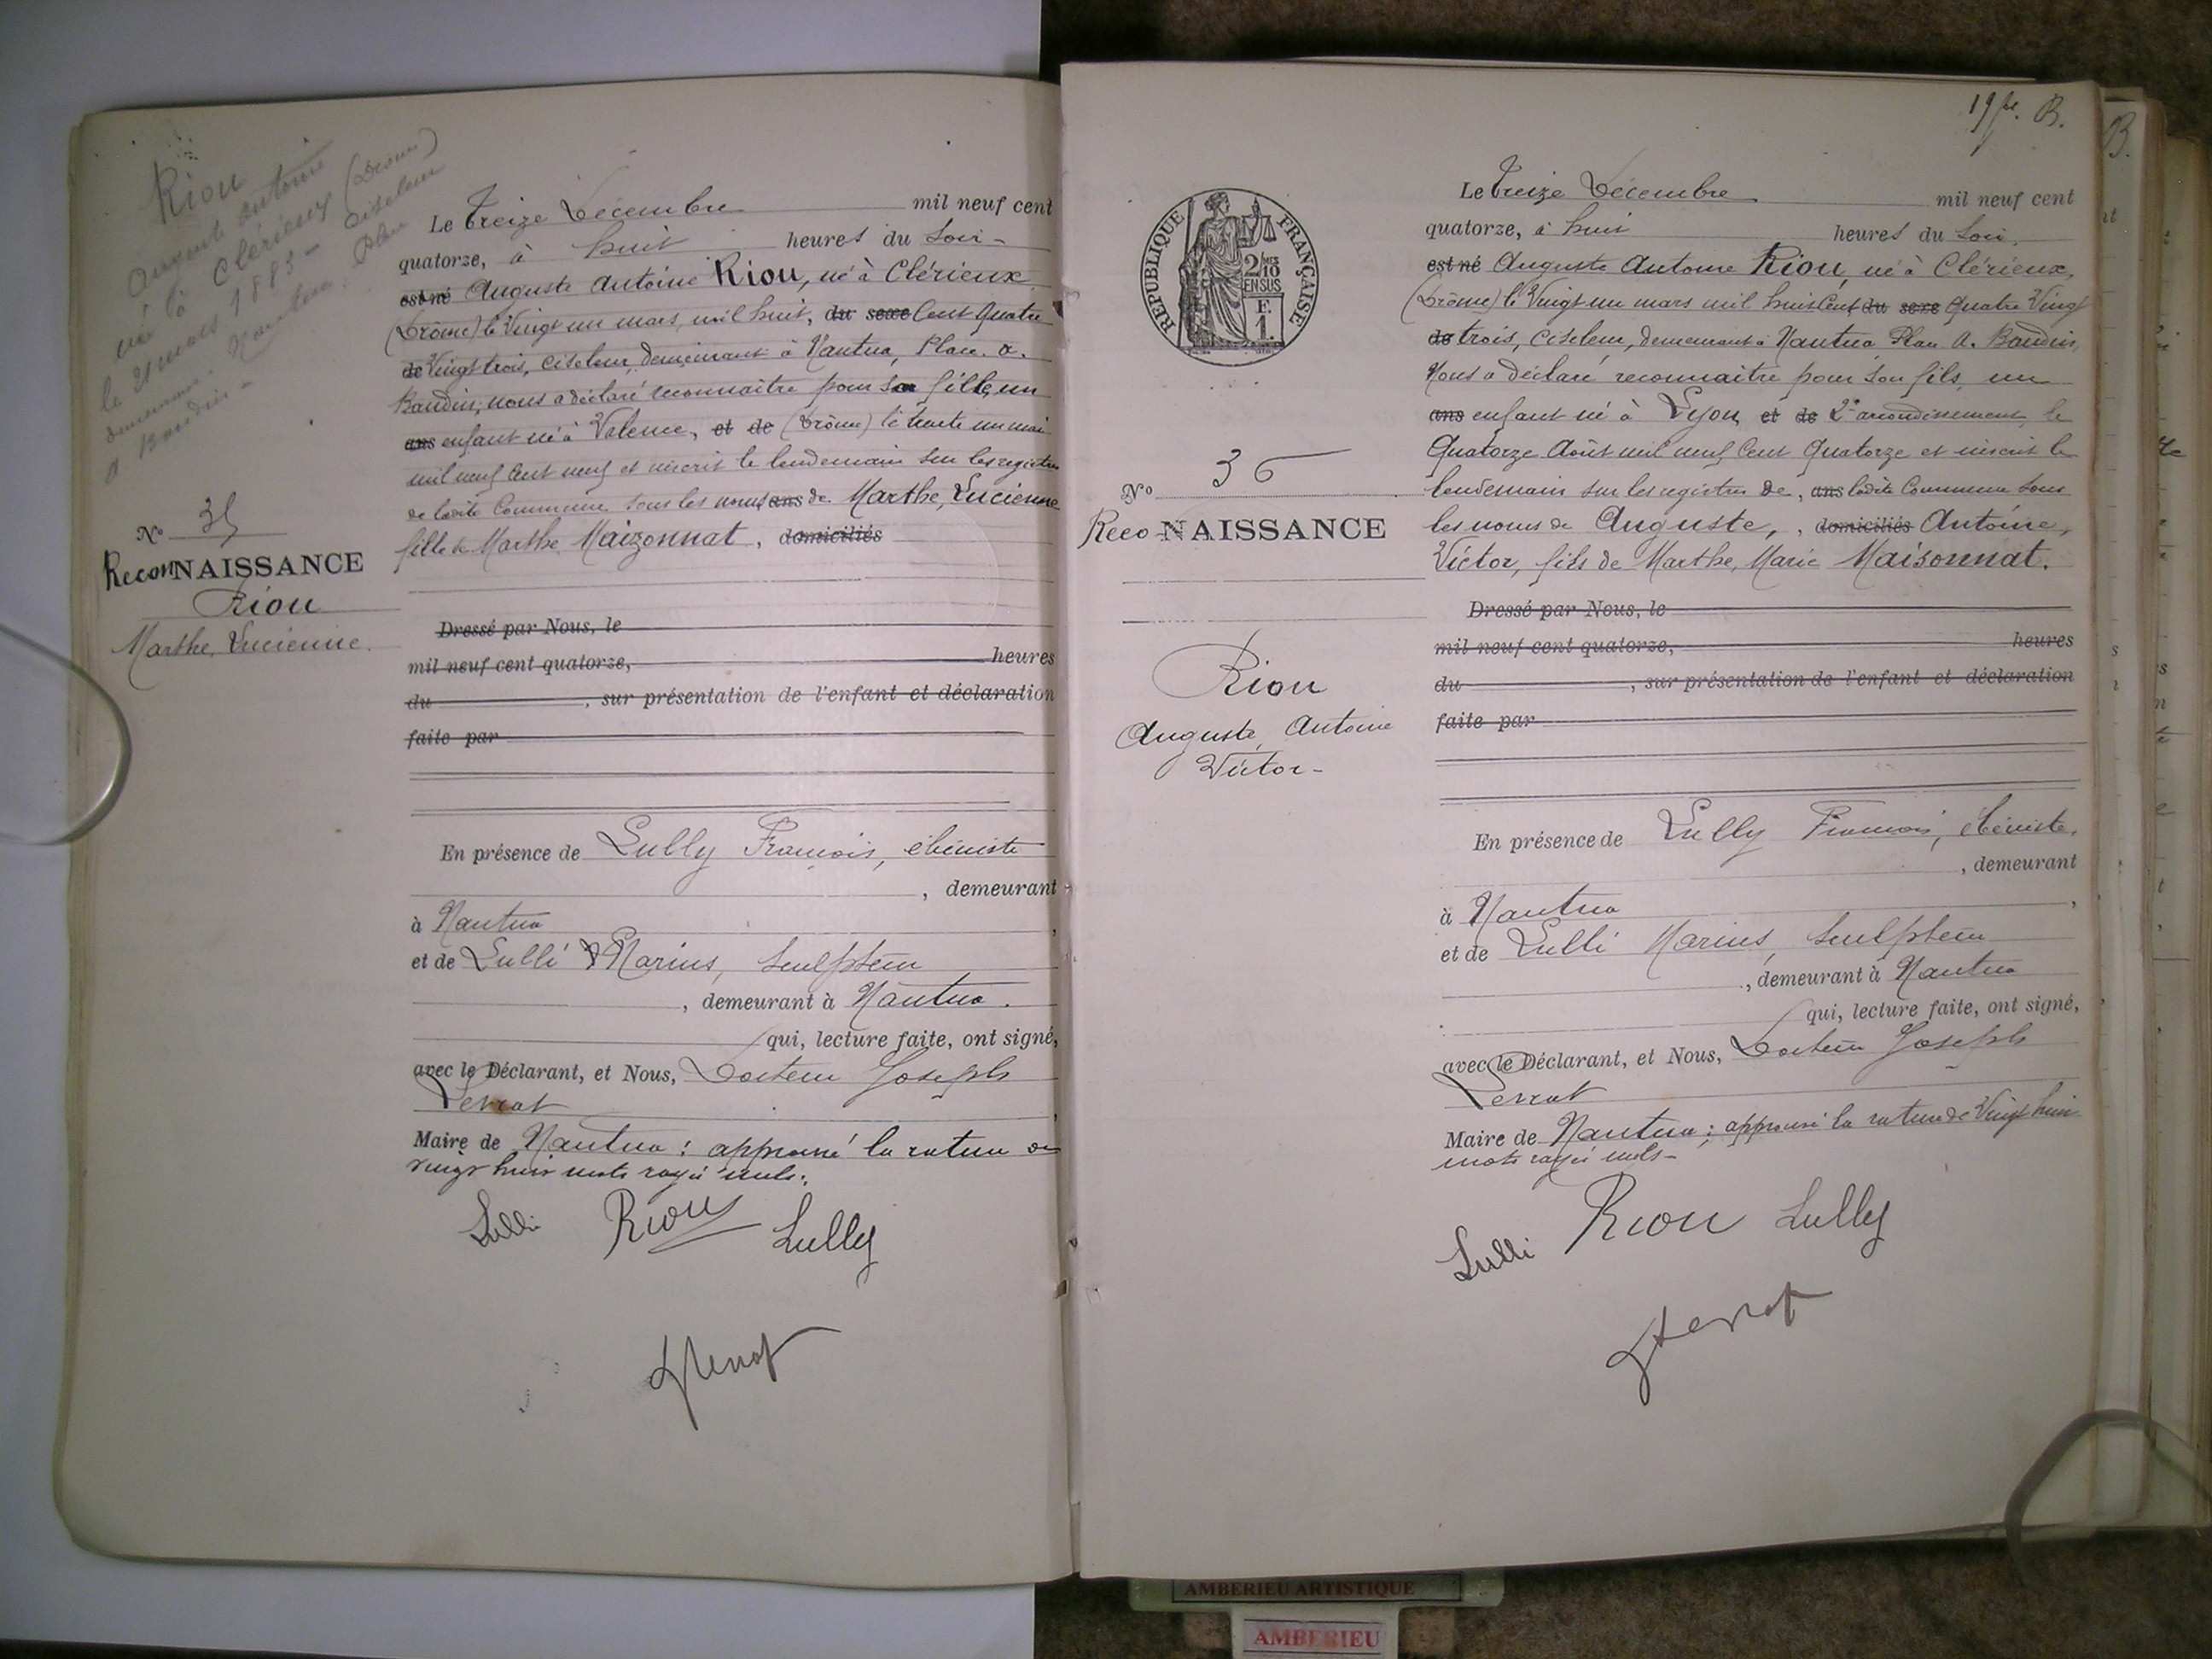 Riou
Auguste Antoine
né à Clérieux (Drôme)
le 21 mars 1883 - Ciseleur
demeurant Nantua, Place
A Baudin -
Le Treize Décembre mil neuf cent
quatorze, à huit heures du Soir -
est né Auguste Antoine Riou, né à Clérieux
(Drôme) le Vingt un mars, mil huit, du sexe Cent Quatre
de Vingt trois, Ciseleur, demeurant à Nantua, Place. A.
Baudin, nous a déclaré reconnaître pour sa fille, un
ans enfant né à Valence, et de (Drôme) le trente un mai
mil neuf Cent neuf et inscrit le lendemain sur les registres
de ladite Commune sous les noms ans de Marthe, Lucienne
fille de Marthe Maizonnat, domiciliés
No 35
ReconNAISSANCE
Riou
Marthe, Lucienne.
Dressé par Nous, le
mil neuf cent quatorze, heures
du , sur présentation de l'enfant et déclaration
faite par
En présence de Lully François, ébéniste
, demeurant
à Nantua ,
et de Lulli Marius, Sculpteur
, demeurant à Nantua.
qui, lecture faite, ont signé,
avec le Déclarant, et Nous, Docteur Joseph
Levrat ,
Maire de Nantua : approuvé la rature de
vingt huit mots rayés nuls.
Lulli Riou Lully
J Levrat
19 B.
B.
REPUBLIQUE FRANÇAISE
2/10
EN SUS
F.
1.
Le Treize Décembre mil neuf cent
quatorze, à huit heures du Soir.
est né Auguste Antoine Riou, né à Clérieux,
(Drôme) le Vingt un mars mil huit Cent du sexe Quatre Vingt
de trois, Ciseleur, demeurant à Nantua Place A. Baudin,
Nous a déclaré reconnaître pour son fils, un
ans enfant né à Lyon, et de 2e arrondissement, le
Quatorze Août mil neuf Cent Quatorze et inscrit le
lendemain sur les registres de, ans ladite Commune sous
les noms de Auguste, , domiciliés Antoine,
Victor, fils de Marthe, Marie Maisonnat.
No 36
Reco-NAISSANCE
Riou
Auguste, Antoine
Victor-
Dressé par Nous, le
mil neuf cent quatorze, heures
du , sur présentation de l'enfant et déclaration
faite par
En présence de Lully François, ébéniste,
, demeurant
à Nantua ,
et de Lulli Marius, Sculpteur
, demeurant à Nantua
qui, lecture faite, ont signé,
avec le Déclarant, et Nous, Docteur Joseph
Levrat
Maire de Nantua ; approuvé la rature de Vingt huit
mots rayés nuls-
Lulli Riou Lully
J Levrat
AMBERIEU ARTISTIQUE
AMBERIEU